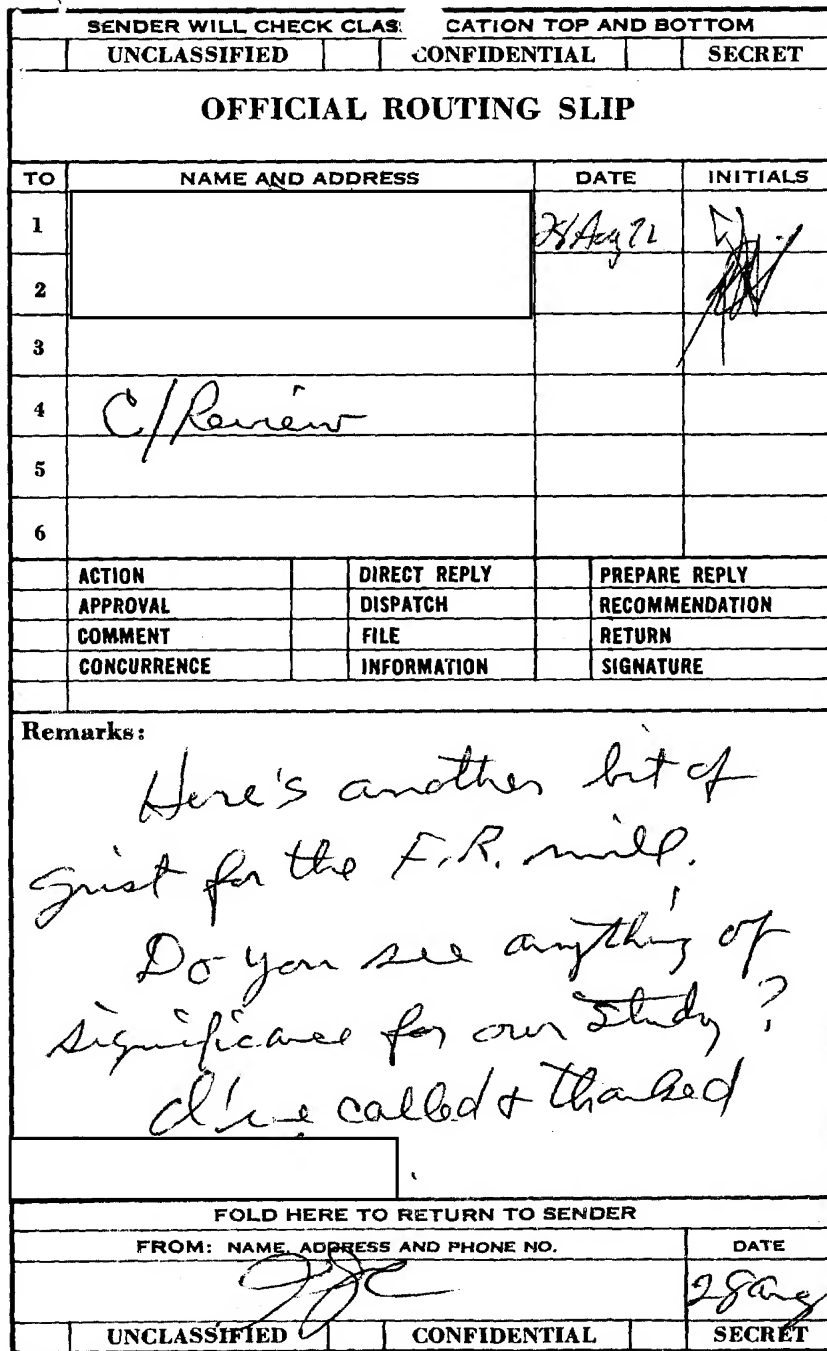 SENDER WILL CHECK CLAS CATION TOP AND BOTTOM
UNCLASSIFIED CONFIDENTIAL SECRET
OFFICIAL ROUTING SLIP
TO NAME AND ADDRESS DATE INITIALS
1 28 Aug 72
2
3
4 C/Review
5
6
ACTION DIRECT REPLY PREPARE REPLY
APPROVAL DISPATCH RECOMMENDATION
COMMENT FILE RETURN
CONCURRENCE INFORMATION SIGNATURE
Remarks:
Here's another bit of
grist for the F.R. mill.
Do you see anything of
significance for our study?
I've called & thanked
FOLD HERE TO RETURN TO SENDER
FROM: NAME, ADDRESS AND PHONE NO. DATE
28 Aug
UNCLASSIFIED CONFIDENTIAL SECRET